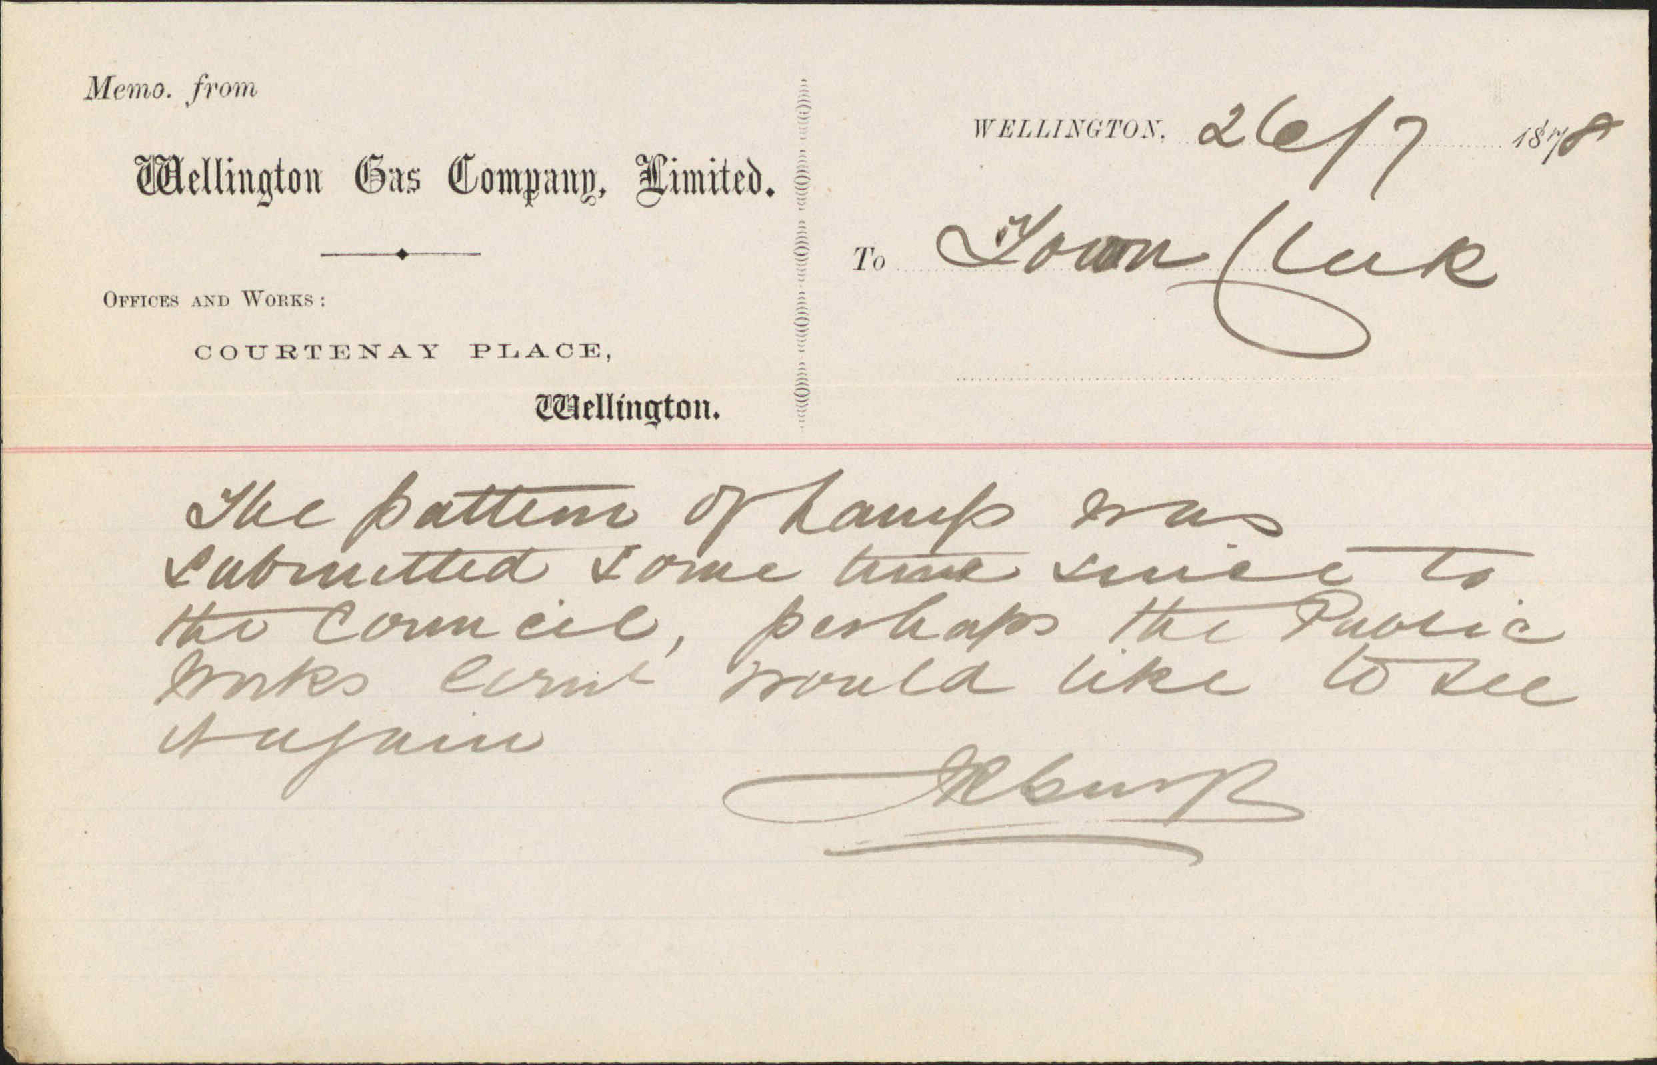 Memo. from
Wellington Gas Company, Limited.
OFFICES AND WORKS:
COURTENAY PLACE,
Wellington.
WELLINGTON, 26/7 1878
To Town Clerk
The pattern of Lamp was
submitted some time since to
the Council, perhaps the Public
Works would like to see
it again